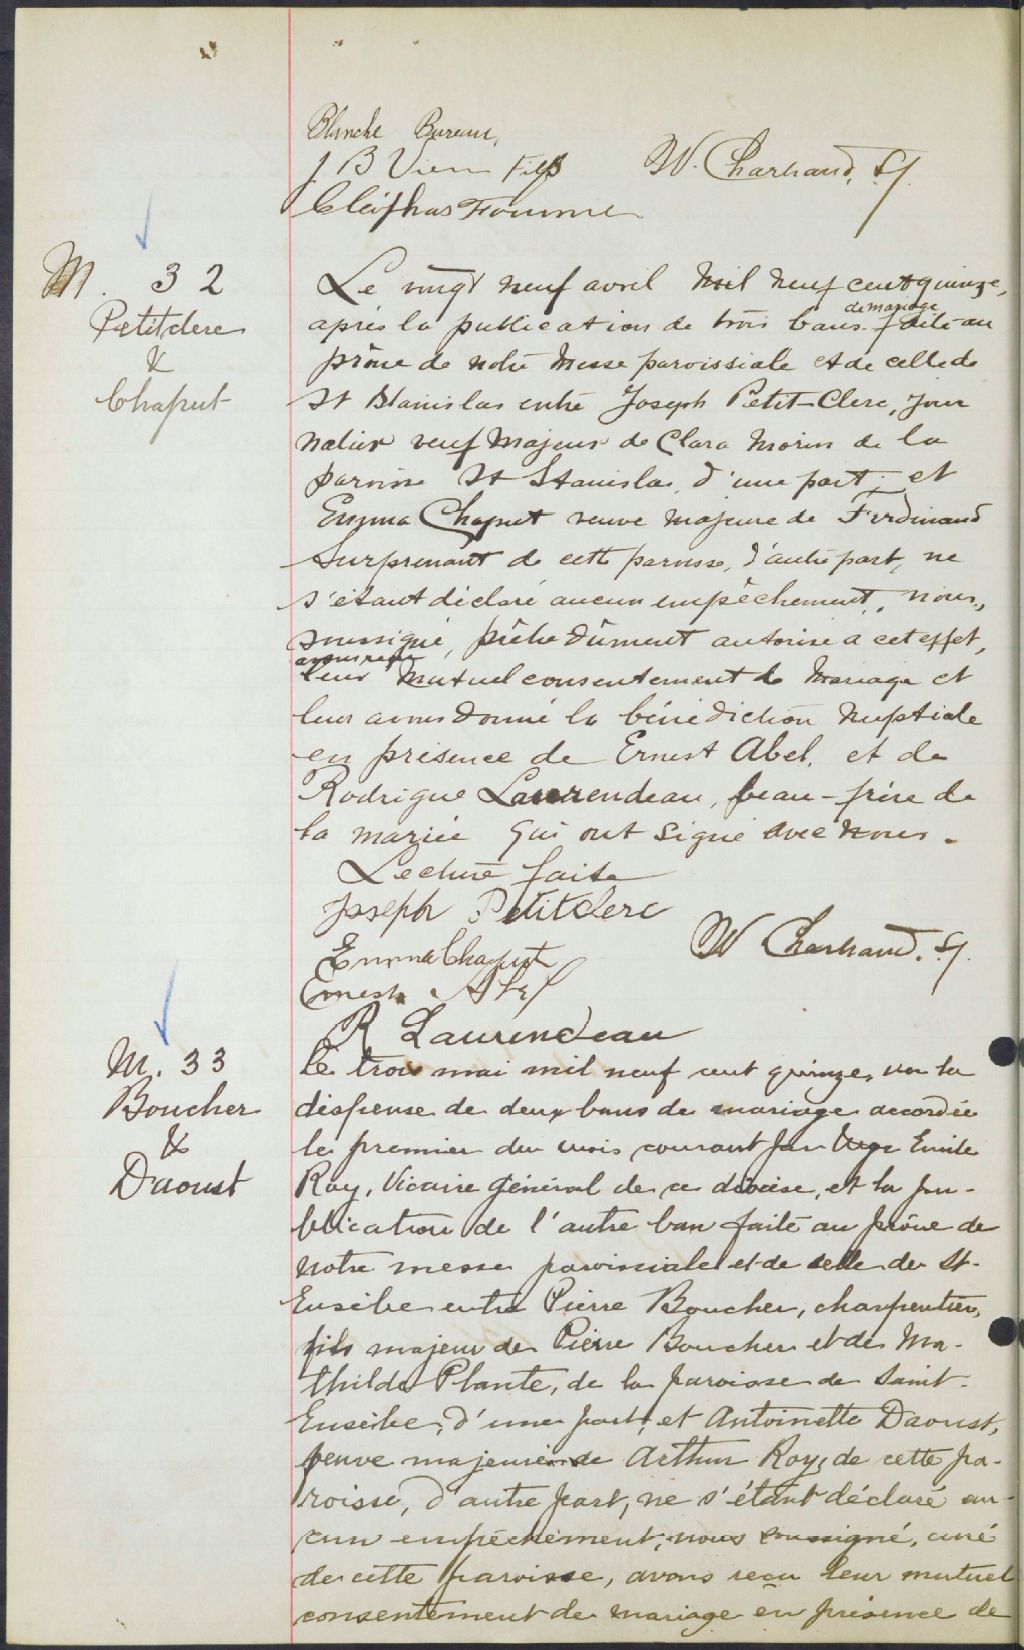 Blanche Bureau,
J B Vien Fils W. Charbaud, Sj.
Cléophas Fournier
M. 32
Petitclerc
&
Chaput
Le vingt neuf avril mil neuf cent quinze,
après la publication de trois bans de mariage faite au
prône de notre messe paroissiale et de celle de
St Stanislas entre Joseph Petit-Clerc, jour
nalier veuf majeur de Clara Morin de la
paroisse St Stanislas, d'une part; et
Emma Chaput veuve majeure de Ferdinand
Surprenant de cette paroisse, d'autre part, ne
s'étant déclaré aucun empêchement, nous,
soussigné, prêtre dûment autorisé à cet effet,
avons reçu leur mutuel consentement de mariage et
leur avons donné la bénédiction nuptiale
en présence de Ernest Abel, et de
Rodrigue Laurendeau, beau-frère de
la mariée qui ont signé avec nous.
Lecture faite
Joseph Petitclerc
Emma Chaput W Charbaud. Sj.
Ernest Abel
R Laurendeau
M. 33
Boucher
&
Daoust
Le trois mai mil neuf cent quinze, vu la
dispense de deux bans de mariage accordée
le premier du mois courant par Mgr Emile
Roy, Vicaire Général de ce diocèse, et la pu-
blication de l'autre ban faite au prône de
notre messe paroissiale et de celle de St-
Eusèbe entre Pierre Boucher, charpentier,
fils majeur de Pierre Boucher et de Ma-
thilde Plante, de la paroisse de Saint-
Eusèbe, d'une part, et Antoinette Daoust,
veuve majeure de Arthur Roy, de cette pa-
roisse, d'autre part, ne s'étant déclaré au-
cun empêchement, nous soussigné, curé
de cette paroisse, avons reçu leur mutuel
consentement de mariage en présence de